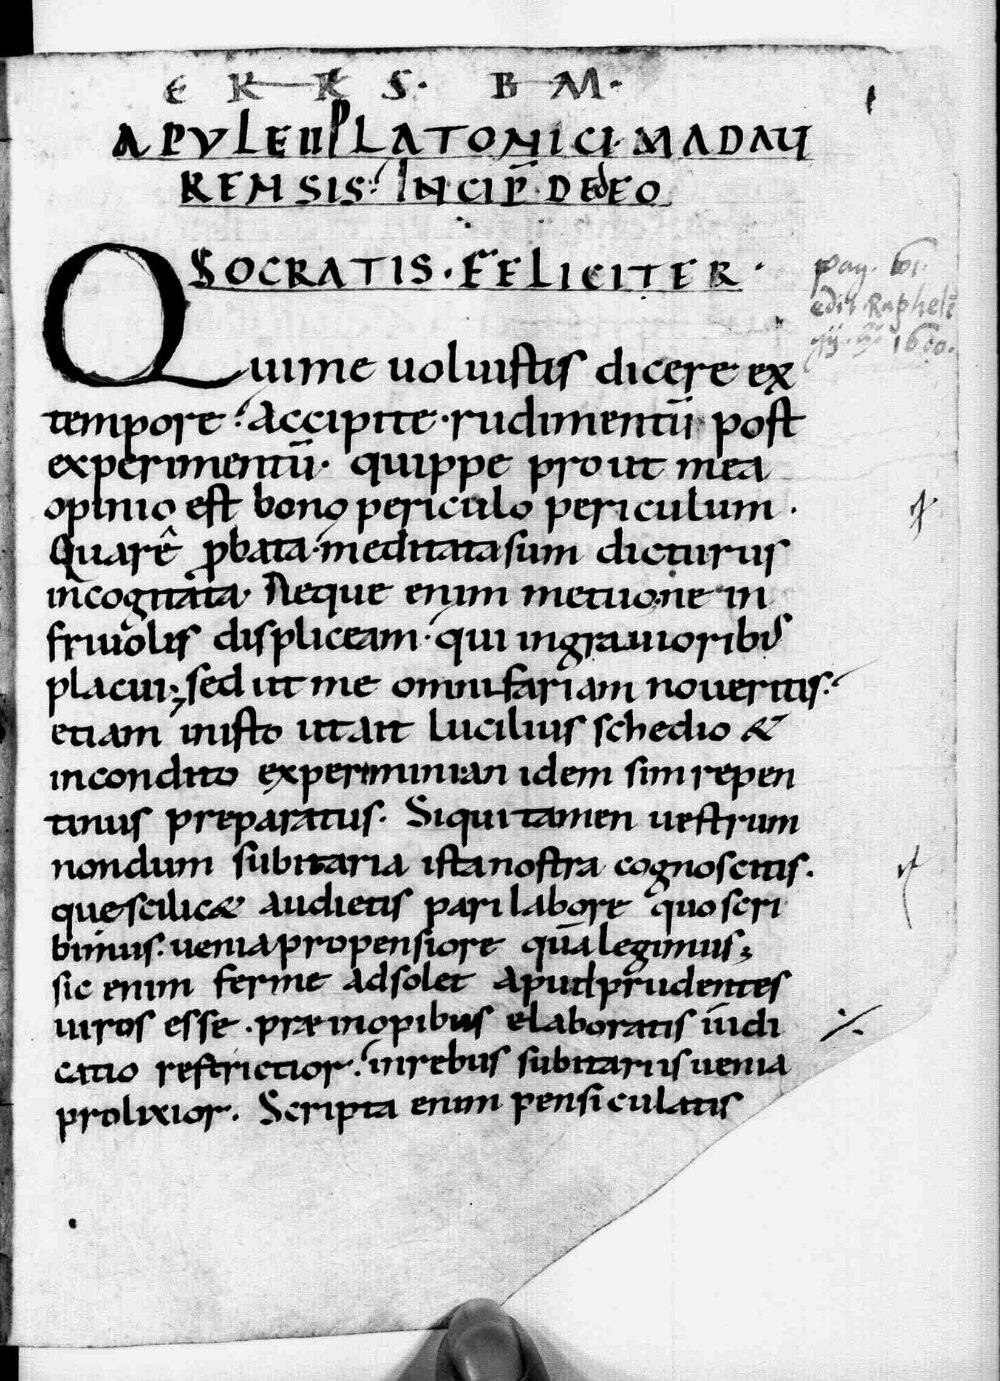 E R R S · B M ·
1
APVLEII PLATONICI MADAU
RENSIS· INCIP̄· DE dEO
SOCRATIS · FELICITER ·
pag. 61.
edit. Raphel
1600.
Qui me uoluistis dicere ex
tempore· accipite · rudimentū post
experimentū· quippe prout mea
opinio est bono periculo periculum ·
Quarê ꝓbata meditata sum dicturus
incogitata· Neque enim metuo · ne in
friuolis displiceam · qui in grauiorib;
placui; sed ut me omnifariam noueritis·
etiam in isto ut ait lucilius schedio &
incondito experiminian idem sim repen
tinus preparatus· Siqui tamen uestrum
nondum subitaria ista nostra cognoscitis·
que scilic& audietis pari labore quo scri
bimus· uenia propensiore quā legimus;
sic enim ferme adsolet apud prudentes
uiros esse · præ in opibus elaboratis iudi
catio restrictior· in rebus subitariis uenia
prolixior. Scripta enim pensiculatis